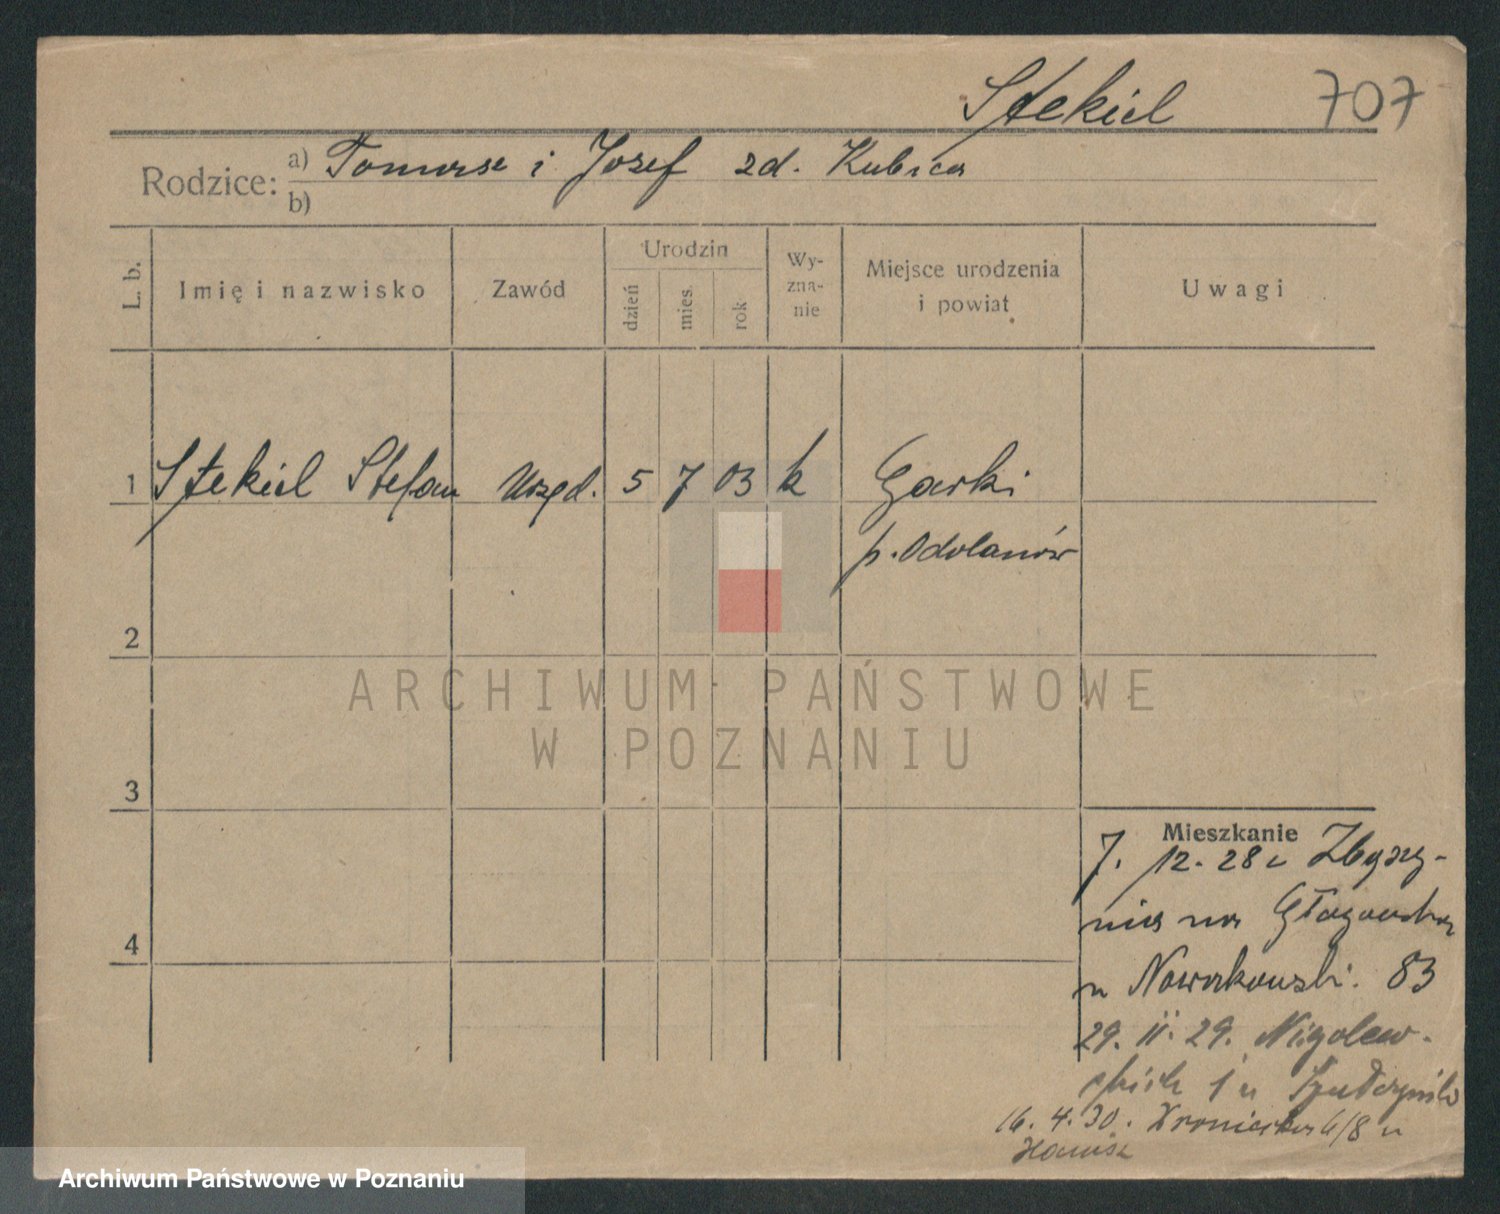 Stekiel 707
Rodzice: a) Tomasz i Józef zd. Kubica
b)
L. b.
Imię i nazwisko
Zawód
Urodzin
dzień
mies.
rok
Wy-
zna-
nie
Miejsce urodzenia
i powiat
Uwagi
1 Stekiel Stefan Urzęd. 5 7 03 k Garki
p. Odolanów
2
ARCHIWUM PAŃSTWOWE
W POZNANIU
3
Mieszkanie
7. 12. 28 z Zbąszy-
nia na Głogowska
u Nowakowski. 83
29. II. 29.
4
16. 4. 30. 6/8 u
Archiwum Państwowe w Poznaniu